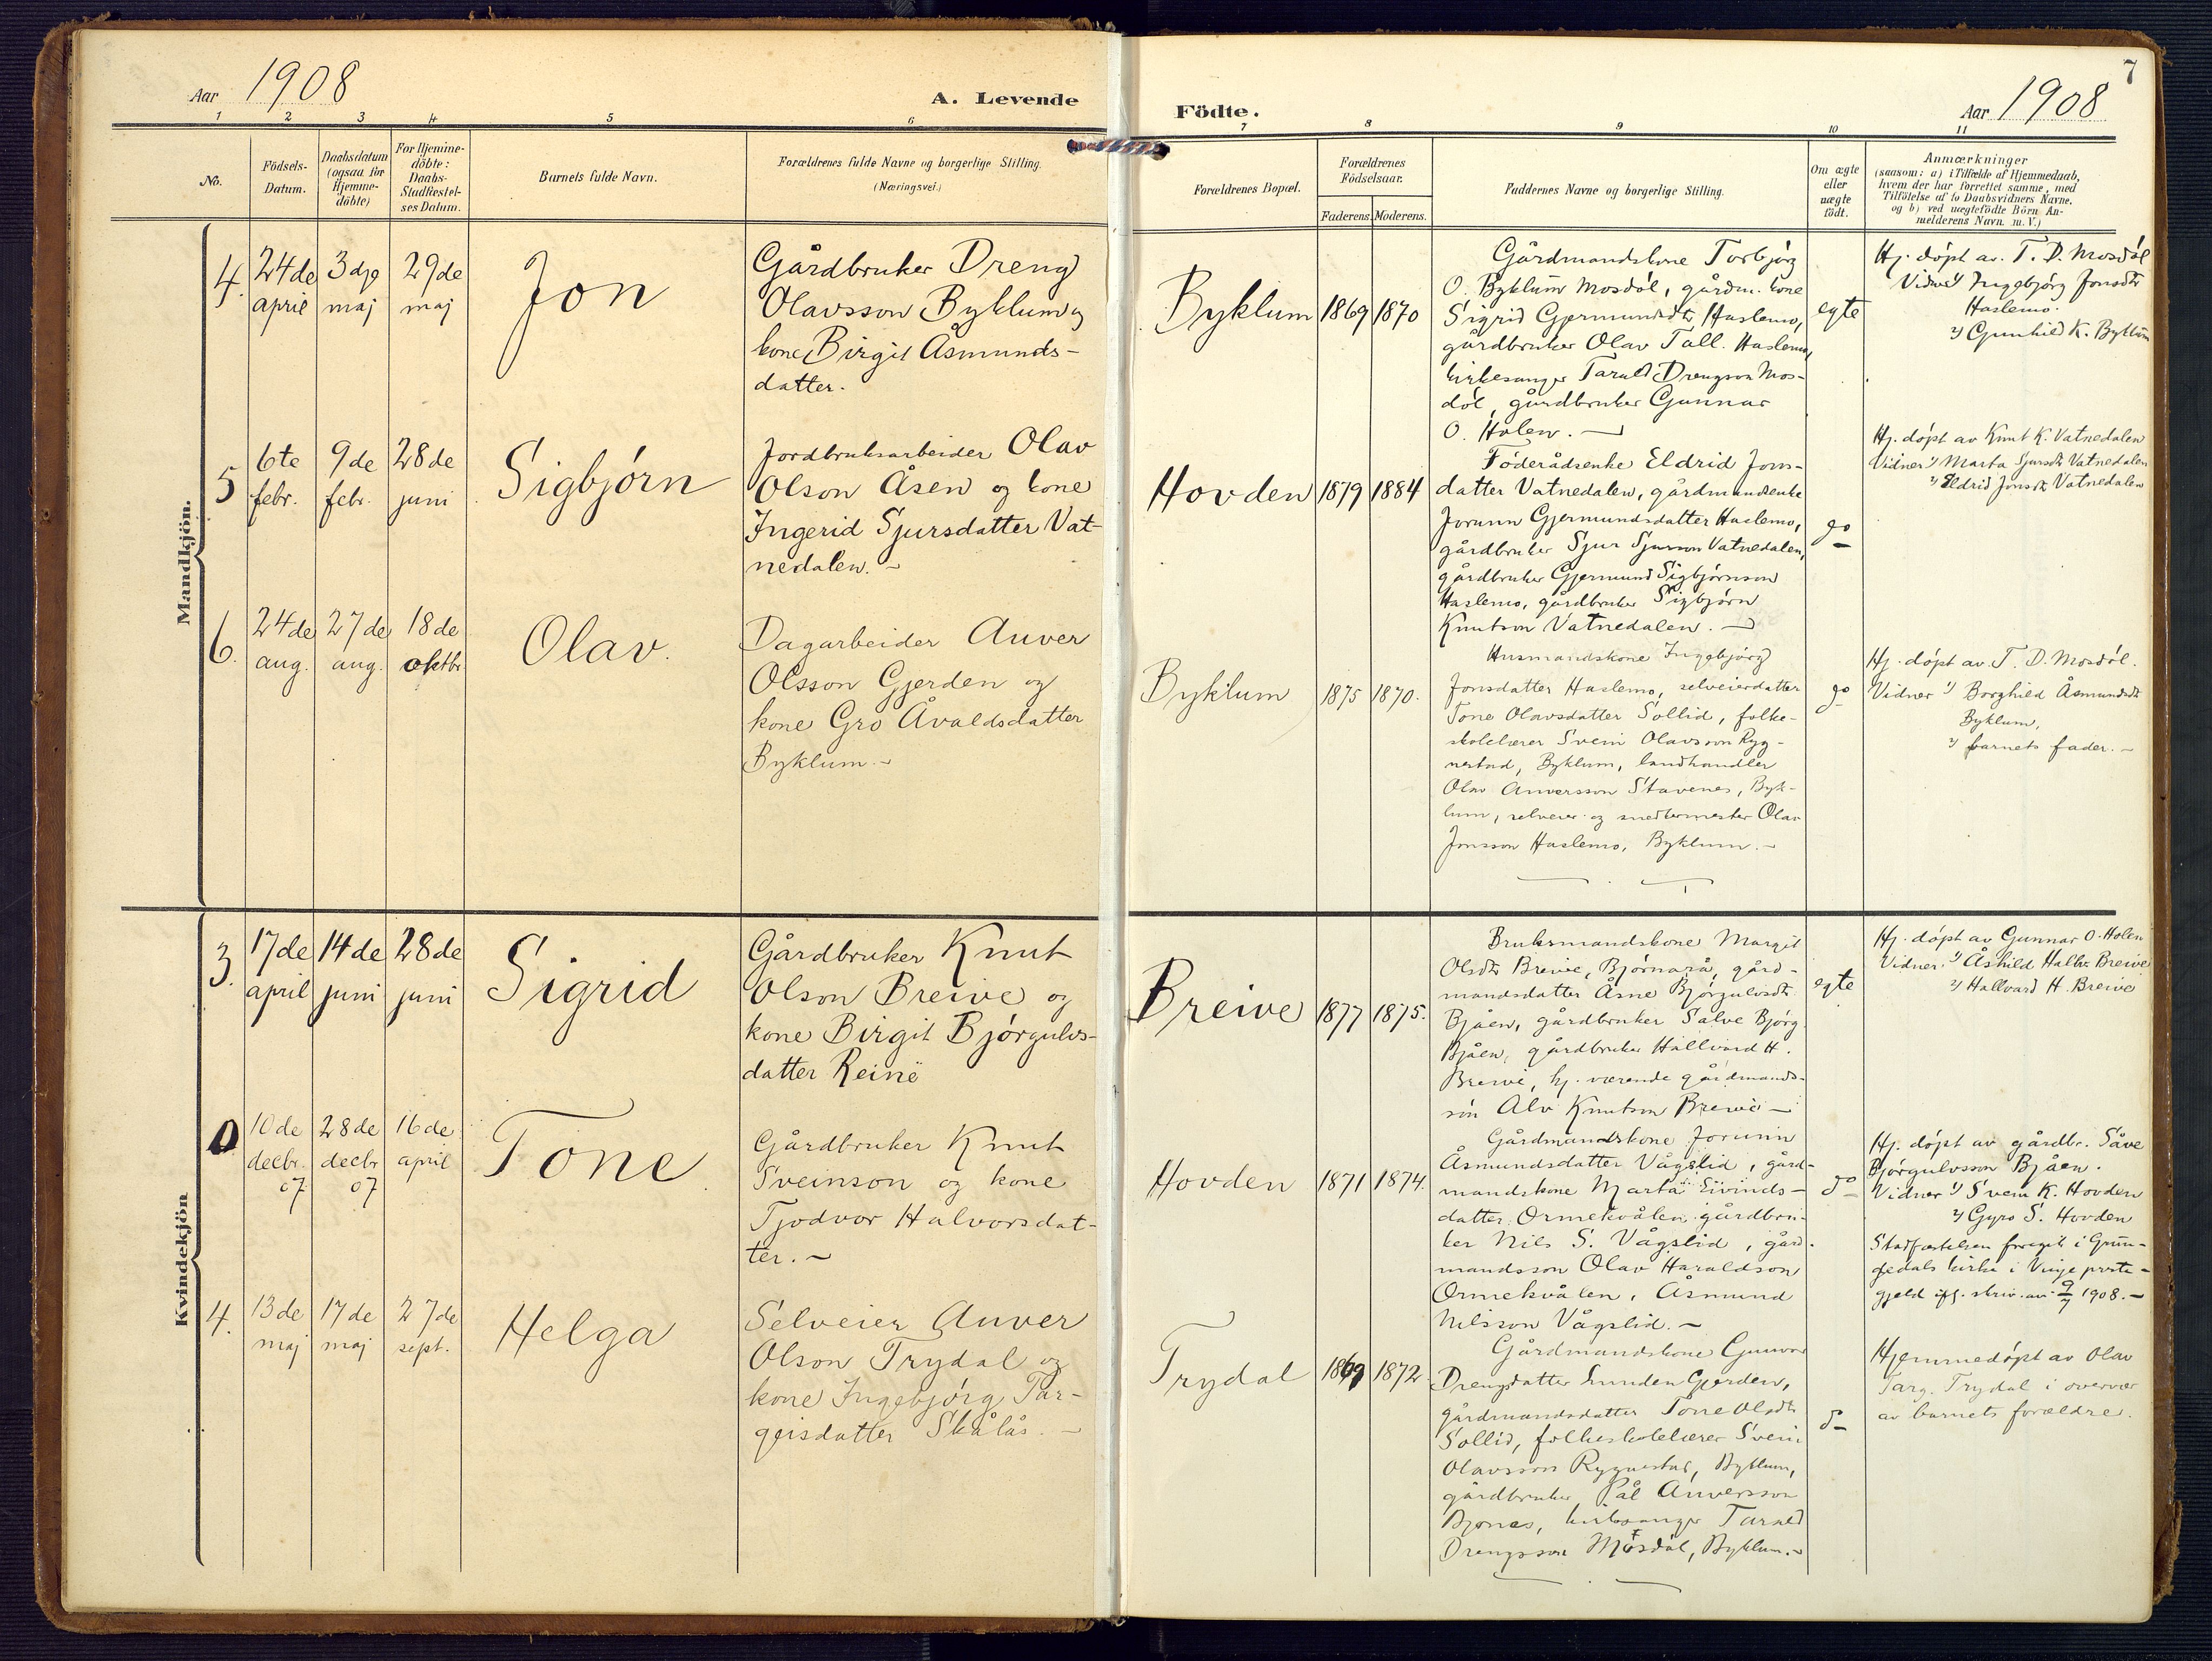 Aar 1908
A. Levende
1 2 3 4 5 6
No.
Födsels-
Datum.
Daabsdatum
(ogsaa for
Hjemme-
döbte)
For Hjemme-
döbte:
Daabs-
Stadfæstel-
ses Datum.
Barnets fulde Navn.
Forældrenes fulde Navne og borgerlige Stilling.
(Næringsvei.)
Mandkjön.
4.
24de
april
3dje
maj
29de
maj
Jon
Gårdbruker Dreng
Olavsson Byklum og
kone Birgit Åsmunds-
datter.
5
6te
febr.
9de
febr.
28de
juni
Sigbjørn
Jordbruksarbeider Olav
Olson Åsen og kone
Ingerid Sjursdatter Vat-
nedalen. -
6.
24de
aug.
27de
aug.
18de
oktbr.
Olav.
Dagarbeider Anver
Olsson Gjerden og
kone Gro Åvaldsdatter
Byklum. -
Kvindekjön
3.
17de
april
14de
juni
28de
juni
Sigrid
Gårdbruker Knut
Olson Breive og
kone Birgit Bjørgulvs-
datter Reine
0
10de
decbr.
07
28de
decbr
07
16de
april
Tone.
Gårdbruker Knut
Sveinson og kone
Tjodvor Halvorsdat-
ter. -
4.
13de
maj
17de
maj
27de
sept.
Helga
Selveier Anver
Olson Trydal og
kone Ingebjørg Tar-
geisdatter Skålås. -
7
Födte.
Aar 1908
7 8 9 10 11
Forældrenes Bopæl.
Forældrenes
Födselsaar.
Faderens. Moderens.
Faddernes Navne og borgerlige Stilling.
Om ægte
eller
uægte
födt.
Anmærkninger
(saasom: a) i Tilfælde af Hjemmedaab,
hvem der har forrettet samme, med
Tilföielse af to Daabsvidners Navne.
og b) ved uægtefödte Börn An-
melderens Navn m. V.)
Byklum 1869 1870
Gårdmandskone Torbjørg
O. Byklum Mosdøl, gårdm. kone
Sigrid Gjermundsdtr Haslemo,
gårdbruker Olav Tall. Haslemo,
kirkesanger Tarald Drengson Mos-
døl, gårdbruker Gunnar
O. Holen. -
egte
Hj. døpt av T. D. Mosdøl
Vidner 1) Ingebjørg Jonsdtr
Haslemo.
2) Gunhild K. Byklum
Hovden 1879 1884
Føderådsenke Eldrid Jons-
datter Vatnedalen, gårdmandsenke
Jorunn Gjermundsdatter Haslemo,
gårdbruker Sjur Sjurson Vatnedalen,
gårdbruker Gjermund Sigbjørnson
Haslemo, gårdbruker Sigbjørn
Knutson Vatnedalen. -
do
Hj. døpt av Knut K. Vatnedalen
Vidner 1) Marta Sjursdtr Vatnedalen
2) Eldrid Jonsdtr Vatnedalen
Byklum 1875 1870.
Husmandskone Ingebjørg
Jonsdatter Haslemo, selveierdatter
Tone Olavsdatter Sollid, folke-
skolelærer Svein Olavsson Ryg-
nestad, Byklum, landhandler
Olav Anversson Stavenes, Byk-
lum, selveier og snedkermester Olav
Jonsson Haslemo, Byklum. -
do
Hj. døpt av T. D. Mosdøl.
Vidner 1) Borghild Åsmundsdtr
Byklum,
2) barnets fader. -
Breive 1877 1875.
Bruksmandskone Margit
Olsdtr Breive, Bjørnarå, gård-
mandsdatter Åsne Bjørgulvsdtr
Bjåen, gårdbruker Salve Bjørg.
Bjåen, gårdbruker Hallvard H.
Breive, hj. værende gårdmands-
søn Alv Knutson Breive -
egte
Hj. døpt av Gunnar O. Holen
Vidner 1) Åshild Hallv. Breive
2) Hallvard H. Breive
Hovden 1871 1874.
Gårdmandskone Jorunn
Åsmundsdatter Vågslid, gård-
mandskone Marta Eivinds-
datter Ormekvålen, gårdbru-
ker Nils S. Vågslid, gård-
mandsson Olav Haraldson
Ormekvålen, Åsmund
Nilsson Vågslid. -
do
Hj. døpt av gårdbr. Såve
Bjørgulvsson Bjåen.
Vidner 1) Svein K. Hovden
2) Gyro S. Hovden
Stadfæstelsen foregik i Grun-
gedals kirke i Vinje preste-
gjeld ifl. skriv. av 9/7 1908. -
Trydal 1869 1872
Gårdmandskone Gunvor
Drengsdatter Lunden Gjerden,
gårdmandsdatter Tone Olsdtr
Sollid, folkeskolelærer Svein
Olavsson Rygnestad, Byklum,
gårdbruker Pål Anversson
Bjones, kirkesanger Tarald
Drengsson Mosdøl, Byklum. -
do
Hjemmedøpt av Olav
Targ. Trydal i overvær
av barnets forældre.